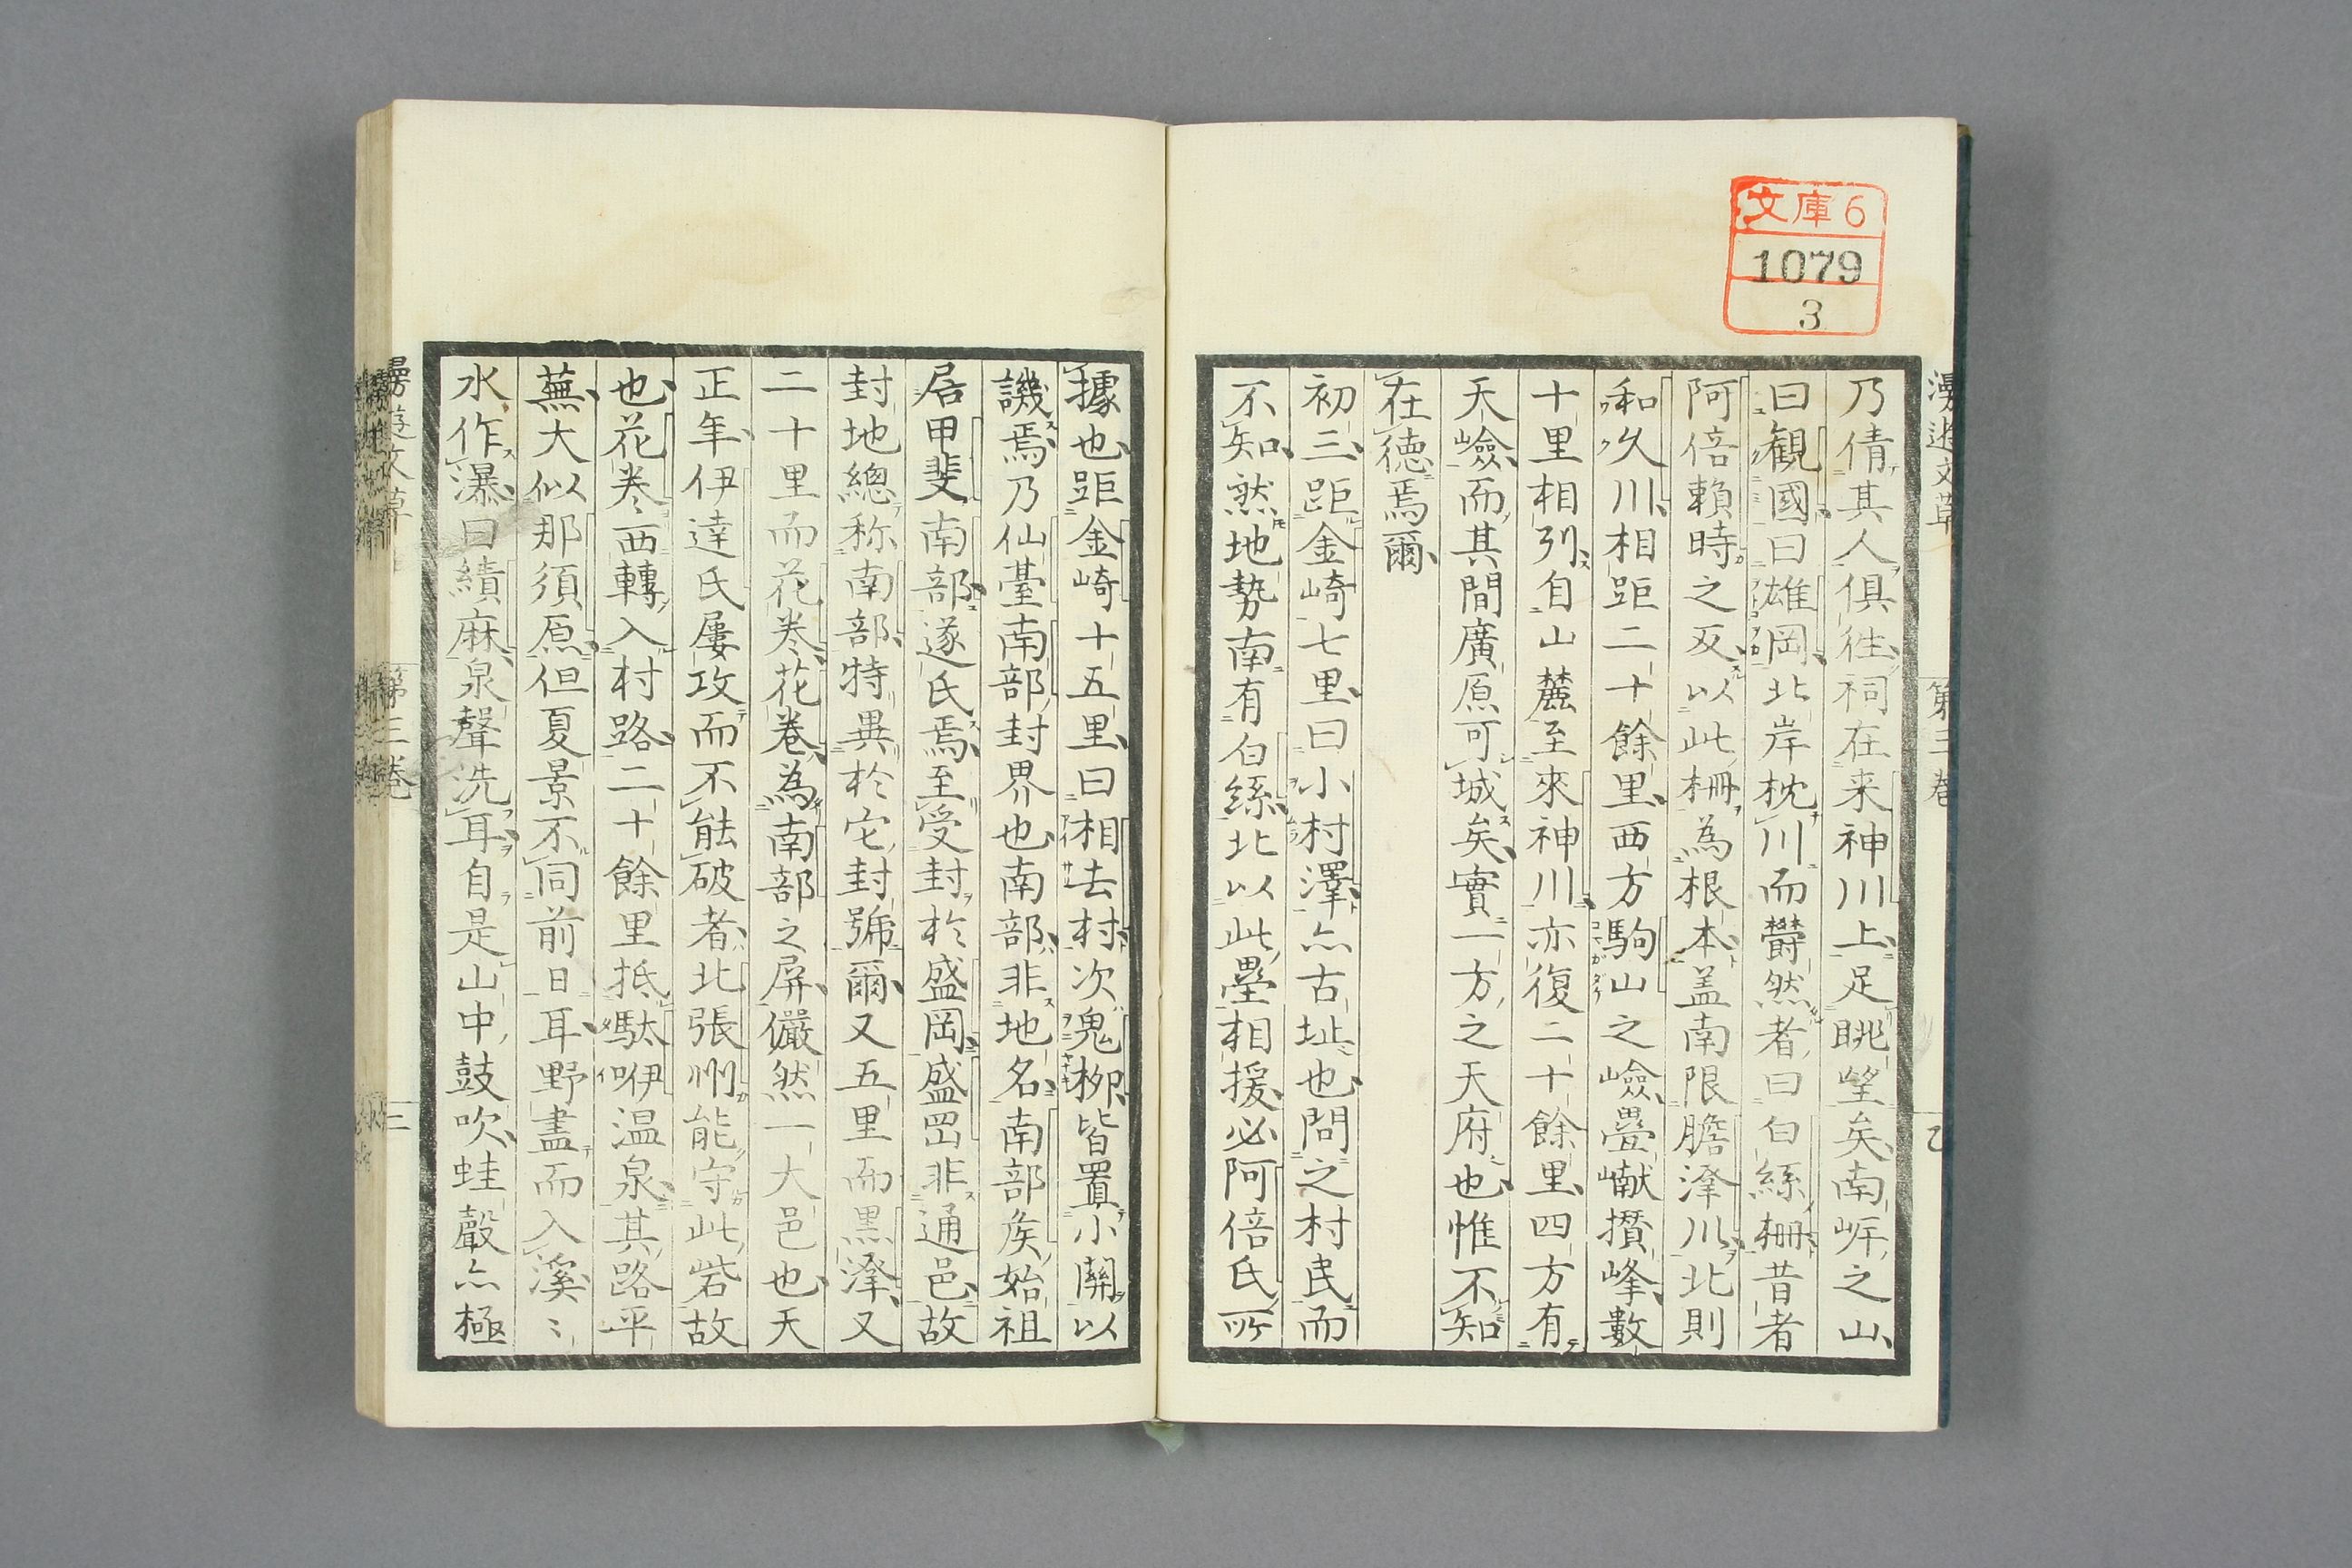 文庫6
1079
3
漫遊文草
第三巻
乃倩其人俱往祠在来神川上足眺望矣南岍之山
曰観國曰雄岡北岸枕川而欝然者曰白絲柵昔者
阿倍頼時之反以此柵為根本盖南限膽澤川北則
和久川相距二十餘里西方駒山之嶮疊巘攅峰數
十里相列自山麓至來神川亦復二十餘里四方有
天嶮而其間廣原可城矣實一方之天府也惟不知
在徳焉爾
初三距金崎七里曰小村澤亦古址也問之村民而
不知然地勢南有白絲北以此壘相援必阿倍氏所
據也距金崎十五里曰相去村次鬼栁皆置小關以
譏焉乃仙臺南部封界也南部非地名南部矦始祖
居甲斐南部遂氏焉至受封於盛岡盛岡非通邑故
封地總称南部特異於它封號爾又五里而黒澤又
二十里而花巻花巻為南部之屏儼然一大邑也天
正年伊達氏屢攻而不能破者北張州能守此砦故
也花巻西轉入村路二十餘里抵駄咿温泉其路平
蕪大似那須原但夏景不同前日耳野盡而入溪〻
水作瀑曰績麻泉聲洗耳自是山中鼓吹蛙聲亦極
漫遊文草
第三巻
三